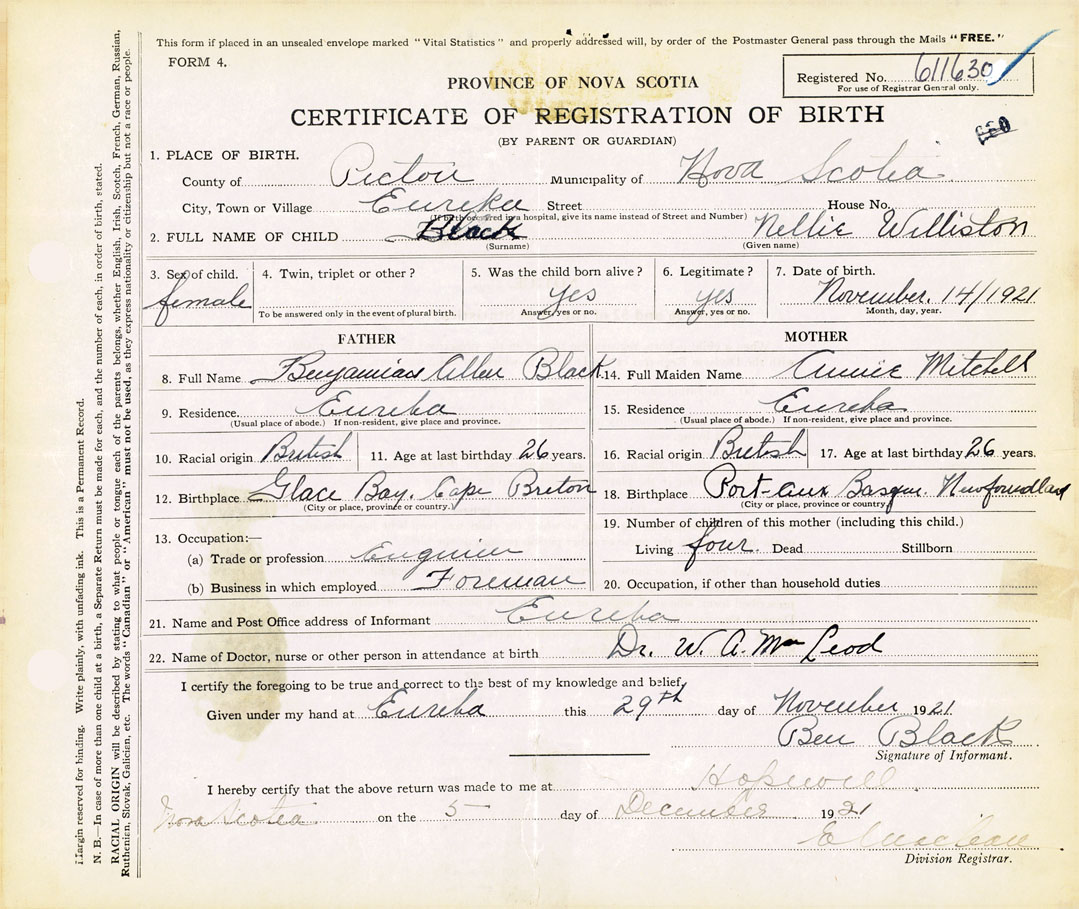 This form if placed in an unsealed envelope marked "Vital Statistics" and properly addressed will, by order of the Postmaster General pass through the Mails "FREE."
FORM 4.
Registered No. 611630
For use of Registrar General only.
PROVINCE OF NOVA SCOTIA
CERTIFICATE OF REGISTRATION OF BIRTH
(BY PARENT OR GUARDIAN)
1. PLACE OF BIRTH.
County of Pictou Municipality of Nova Scotia
City, Town or Village Eureka Street House No.
(If birth occurred in a hospital, give its name instead of Street and Number)
2. FULL NAME OF CHILD Black Nellie Williston
(Surname) (Given name)
3. Sex of child. 4. Twin, triplet or other? 5. Was the child born alive? 6. Legitimate? 7. Date of birth.
female yes yes November. 14/1921
To be answered only in the event of plural birth. Answer, yes or no. Answer, yes or no. Month, day, year.
FATHER MOTHER
8. Full Name Benjamian Allen Black 14. Full Maiden Name Annie Mitchell
9. Residence. Eureka 15. Residence Eureka
(Usual place of abode.) If non-resident, give place and province. (Usual place of abode.) If non-resident, give place and province.
10. Racial origin British 11. Age at last birthday 26 years. 16. Racial origin British 17. Age at last birthday 26 years.
12. Birthplace Glace Bay. Cape Breton 18. Birthplace Port-aux Basque. Newfoundland
(City or place, province or country.) (City or place, province or country)
19. Number of children of this mother (including this child.)
13. Occupation:—
(a) Trade or profession Enginier Living four. Dead Stillborn
(b) Business in which employed Foreman 20. Occupation, if other than household duties
21. Name and Post Office address of Informant Eureka
22. Name of Doctor, nurse or other person in attendance at birth Dr. W. A. Mac Leod
I certify the foregoing to be true and correct to the best of my knowledge and belief.
Given under my hand at Eureka this 29th day of November 1921
Ben Black
Signature of Informant.
I hereby certify that the above return was made to me at Hopewell
Nova Scotia on the 5 day of December 1921
Division Registrar.
Margin reserved for binding. Write plainly, with unfading ink. This is a Permanent Record.
N. B.—In case of more than one child at a birth, a Separate Return must be made for each, and the number of each, in order of birth, stated.
RACIAL ORIGIN will be described by stating to what people or tongue each of the parents belongs, whether English, Irish, Scotch, French, German, Russian,
Ruthenian, Slovak, Galician, etc. The words "Canadian" or "American" must not be used, as they express nationality or citizenship but not a race or people.